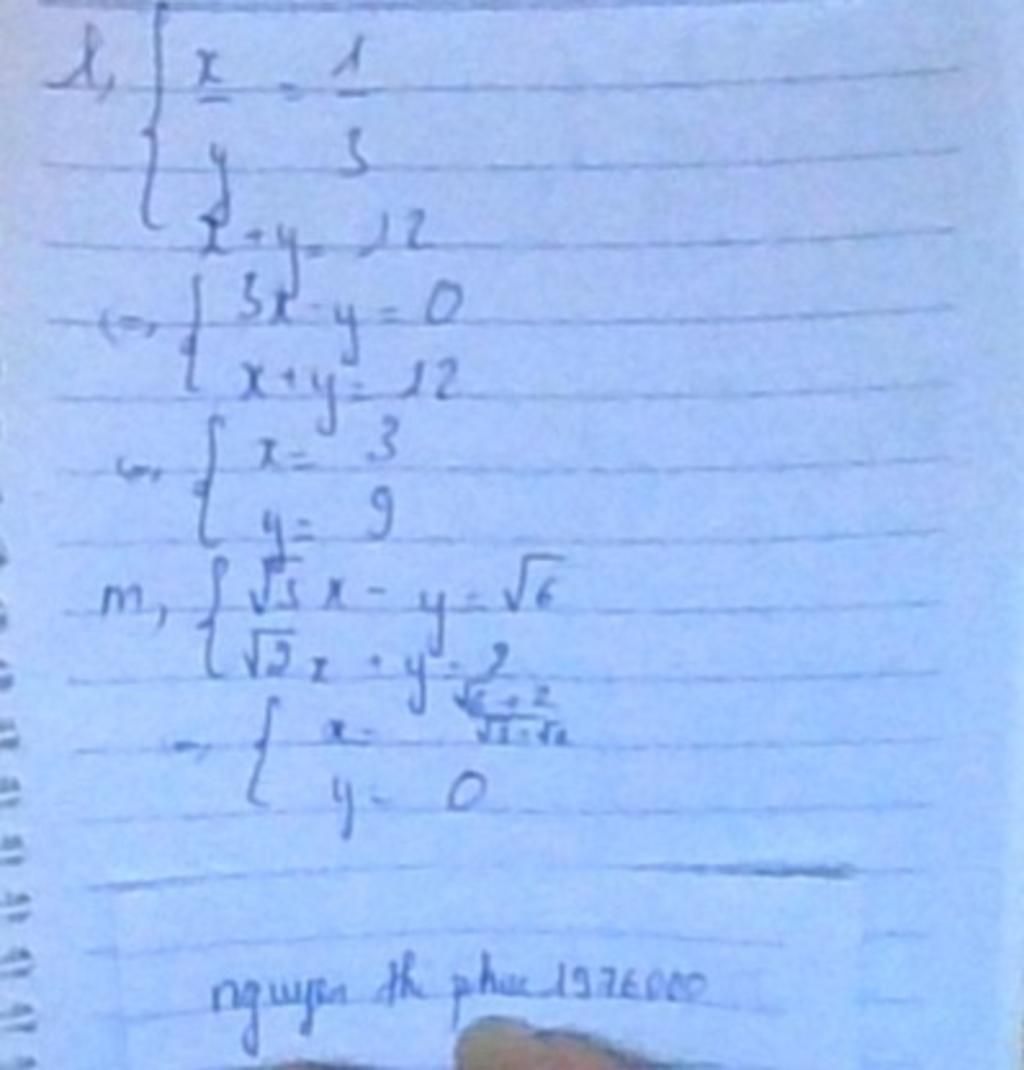 l, { x/y = 1/3
x + y = 12
<=> { 3x - y = 0
x + y = 12
<=> { x = 3
y = 9
m, { √3 x - y = √6
√2 x + y = 2
{ x = (√6 + 2)/(√3 + √2)
y = 0
nguyen th phuc 1976000